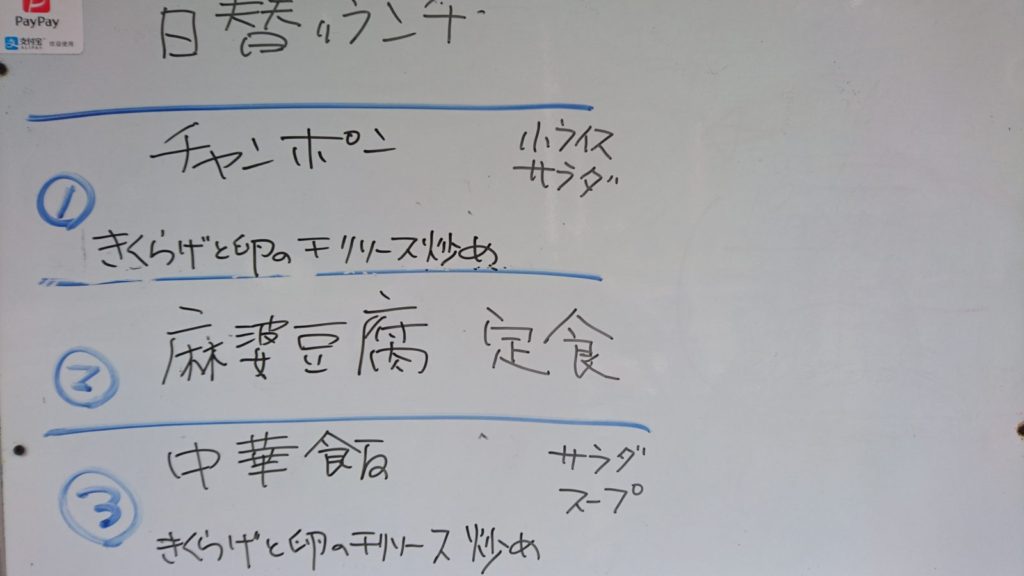 PayPay
支付宝
ALIPAY
日替りランチ
チャンポン
小ライス
サラダ
①
きくらげと卵のチリソース炒め
②
麻婆豆腐 定食
中華飯
サラダ
スープ
③
きくらげと卵のチリソース炒め